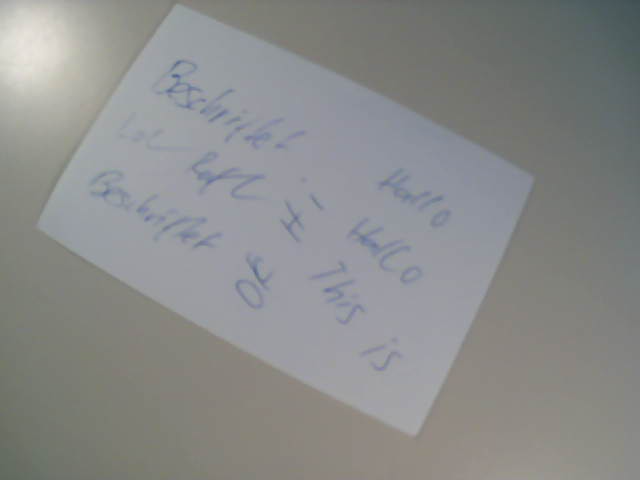 Beschriftet Hallo
Lol Rofl :- Hallo
Beschriftet This is